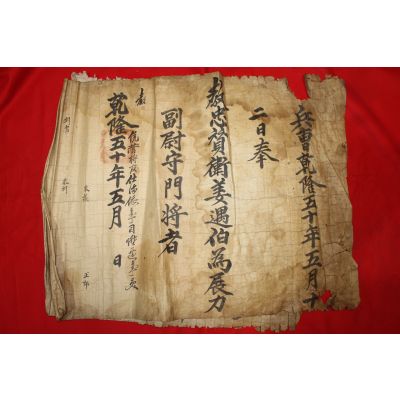 兵曹乾隆五十年五月十
二日奉
教忠贊衛姜遇伯為展力
副尉守門將者
乾隆五十年五月 日
判書
參判
參議
正郎